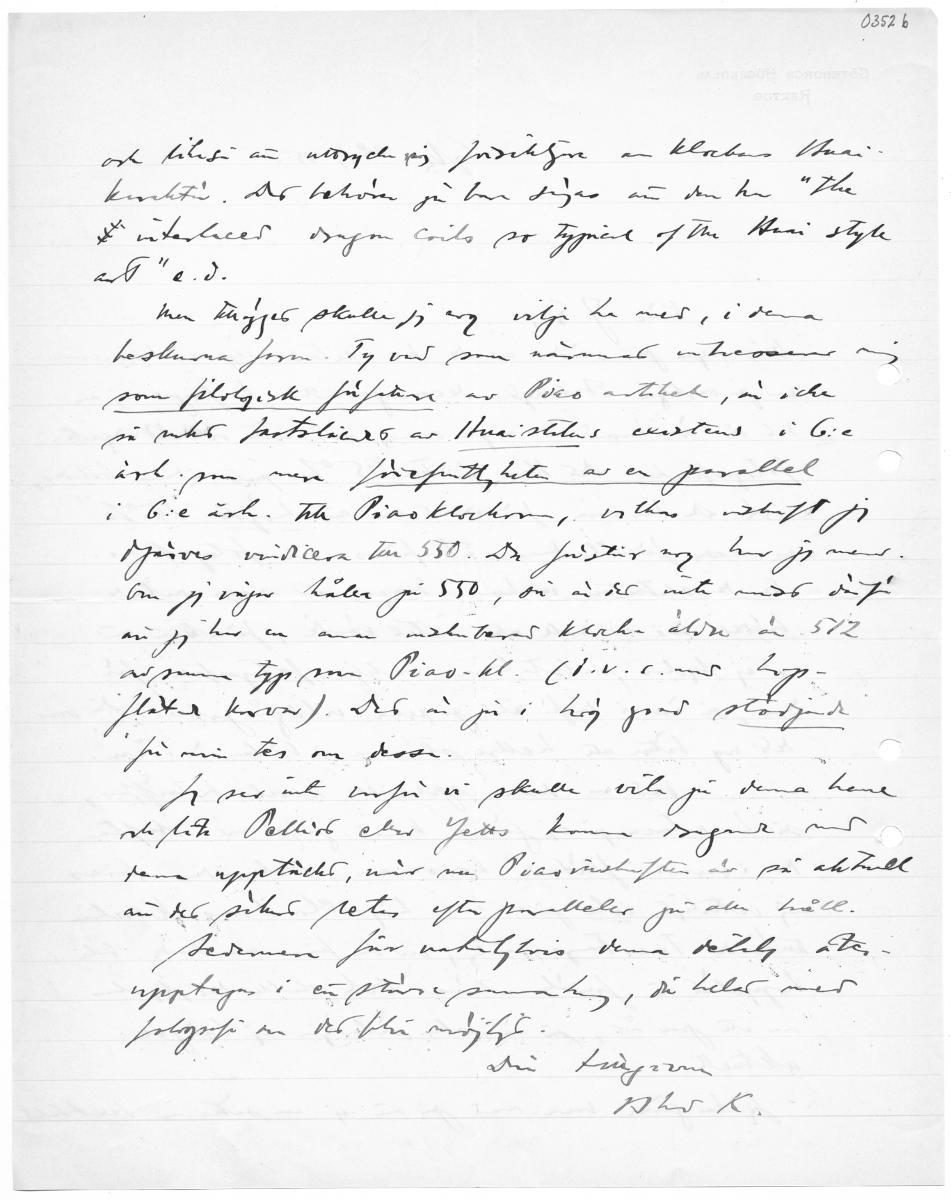 0352 b
GÖTEBORGS HÖGSKOLAS
REKTOR
och likaså att uttrycka sig försiktigare om klockans Huai-
karaktär. Det behöver ju bara sägas att den har "the
interlaced dragon coils so typical of the Huai style
art" e.d.
Men tillägget skulle jag nog vilja ha med, i denna
beskurna form. Ty vad som närmast intresserar mig
som filologisk författare av Piao artikeln, är icke
så mkt fastslåendet av Huaistilens existens i 6:e
årh. som mera förefintligheten av en parallel
i 6:e årh. till Piaoklockorna, vilkas inskrift jag
djärves vindicera till 550. Du förstår nog hur jag menar.
Om jag vågar hålla på 550, så är det inte minst därför
att jag har en annan inskriberad klocka äldre än 512
av samma typ som Piao-kl. (d.v.s. med hop-
flätade kurvor). Det är ju i hög grad stödjande
för min tes om dessa.
Jag ser inte varför vi skulle vila på denna
och låta Pelliot eller Yetts komma dragande med
denna upptäckt, när nu Piaoinskriften är så aktuell
att det säkert letas efter paralleler på alla håll.
Sedermera får naturligtvis denna detalj åter-
upptagas i ett större sammanhang, då helst med
fotografi om det blir möjligt.
Din tillgivne
K.